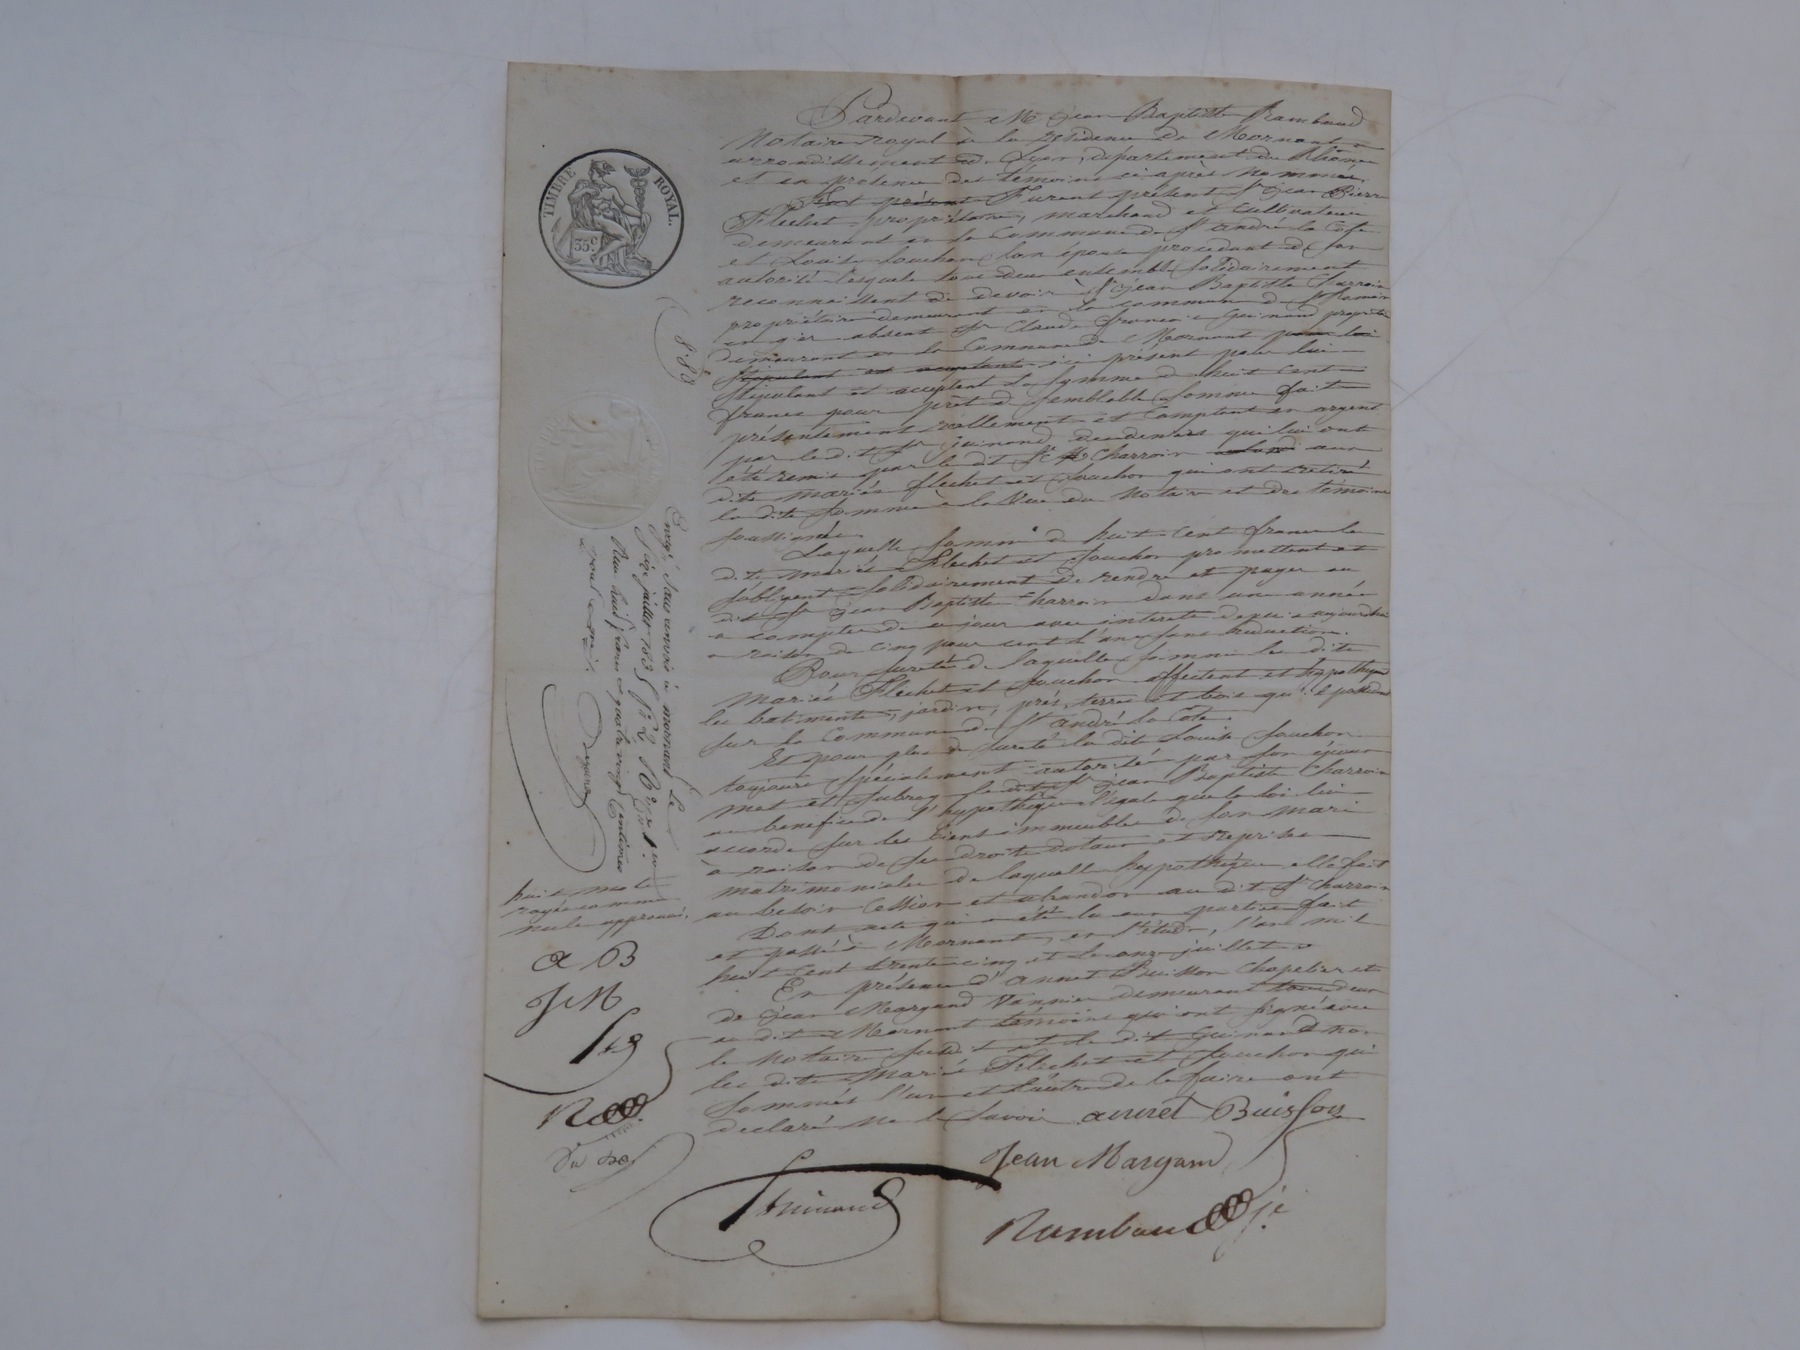 Pardevant Me Jean Baptiste Rambaud
Notaire royal à la résidence de Mornant
arrondissement de Lyon, département du Rhône
et en présence des témoins ci après nommés,
Sont présent Furent présent Sr Jean Pierre
Flechet propriétaire, marchand et cultivateur
demeurant en la Commune de St andré la Côte
et Louise Souchon son épouse procédant de son
autorité lesquels tous deux ensemble solidairement
reconnaissent de devoir à Sr Jean Baptiste Charroin
propriétaire demeurant en la commune de St Romain
en gier absent Sr Claude françois Guinand propriétaire
demeurant en la Commune de Mornant pour lui
stipulant et acceptant ici présent pour lui
stipulant et acceptant la somme de huit cent
francs pour prêt de semblable somme fait
présentement réellement et comptant en argent
par le dit Sr Guinand des deniers qui lui ont
été remis par le dit Sr Charroin aux
dits mariés flechet et Souchon qui ont retiré
la dite somme à la vue du Notaire et des témoins
soussignés.
Laquelle somme de huit cent francs les
dits mariés Flechet et Souchon promettent et
s'obligent solidairement de rendre et payer au
dit Sr Jean Baptiste Charroin dans une année
à compter de ce jour avec intérêts depuis aujourd'hui
à raison de cinq pour cent l'an sans réduction.
Pour sureté de laquelle somme les dits
mariés Flechet et Souchon affectent et hypothèquent
les batiments, jardin, prés, terres et bois qu'ils possèdent
sur la Commune de St andré la Côte.
Et pour plus de sureté la dite Louise Souchon
toujours spécialement autorisée par son époux
met et subroge le dit Sr Jean Baptiste Charroin
au bénéfice de l'hypothèque légale que la loi lui
accorde sur les biens immeubles de son mari
à raison de ses droits dotaux et reprises
matrimoniales de laquelle hypothèque elle fait
au besoin Cession et abandon au dit Sr Charroin
Dont acte qui a été lu aux parties fait
et passé à Mornant, en l'étude, l'an mil
huit cent trente cinq et le onze juillet
En présence d'annet Buisson chapelier et
de Jean Margand Vannier demeurant tous deux
au dit Mornant témoins qui ont signé avec
le Notaire susdit et le dit Guinand non
les dits Mariés Flechet et Souchon qui
sommés l'un et l'autre de le faire ont
déclaré ne le savoir
annet Buisson
Jean Margand
Guinand
Rambaud
TIMBRE ROYAL
35c
Enregistré sauf renvoi à mornant le
juillet 1835
Reçu huit francs quatre vingt centimes
huit mots
rayés comme
nuls approuvés.
a B
J M